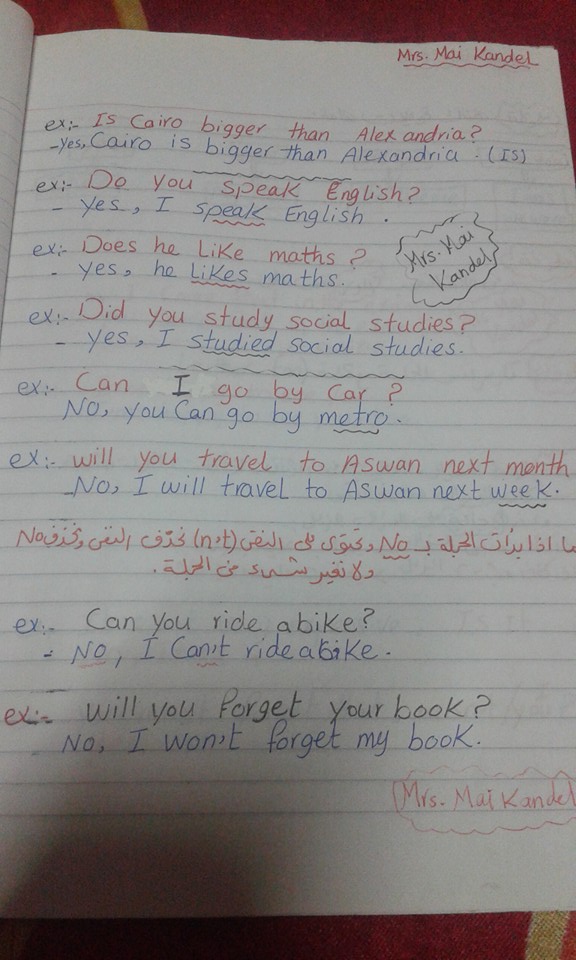 Mrs. Mai Kandel
ex:- Is Cairo bigger than Alexandria?
-yes, Cairo is bigger than Alexandria. (IS)
ex:- Do you speak English?
- yes, I speak English.
Mrs. Mai
Kandel
ex:- Does he Like maths?
- yes, he Likes maths.
ex:- Did you study social studies?
- yes, I studied social studies.
ex:- Can I go by Car?
No, you Can go by metro.
ex:- will you travel to Aswan next month
-No, I will travel to Aswan next week.
اذا بدأت الجملة بـ No وتحتوى على النفى (n't) نحذف النفى ونحذف No
ولا نغير شىء فى الجملة.
ex:- Can you ride abike?
- No, I Can't ride abike.
ex:- will you forget your book?
No, I won't forget my book.
Mrs. Mai Kandel